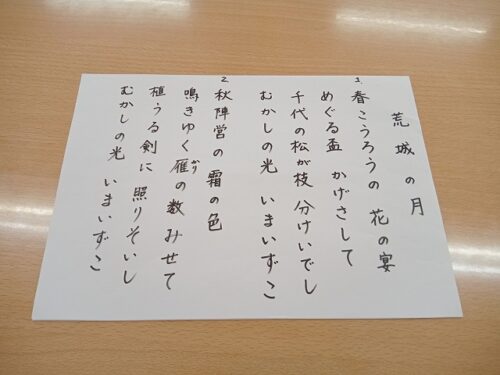 荒城の月
1. 春こうろうの 花の宴
めぐる盃 かげさして
千代の松が枝 分けいでし
むかしの光 いまいずこ
2. 秋陣営の霜の色
鳴きゆく雁の数みせて
かり
植うる剣に 照りそいし
むかしの光 いまいずこ